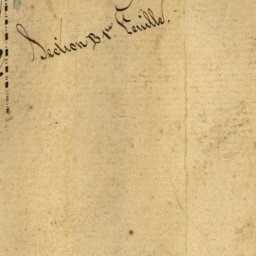 Section B 1re Feuille.